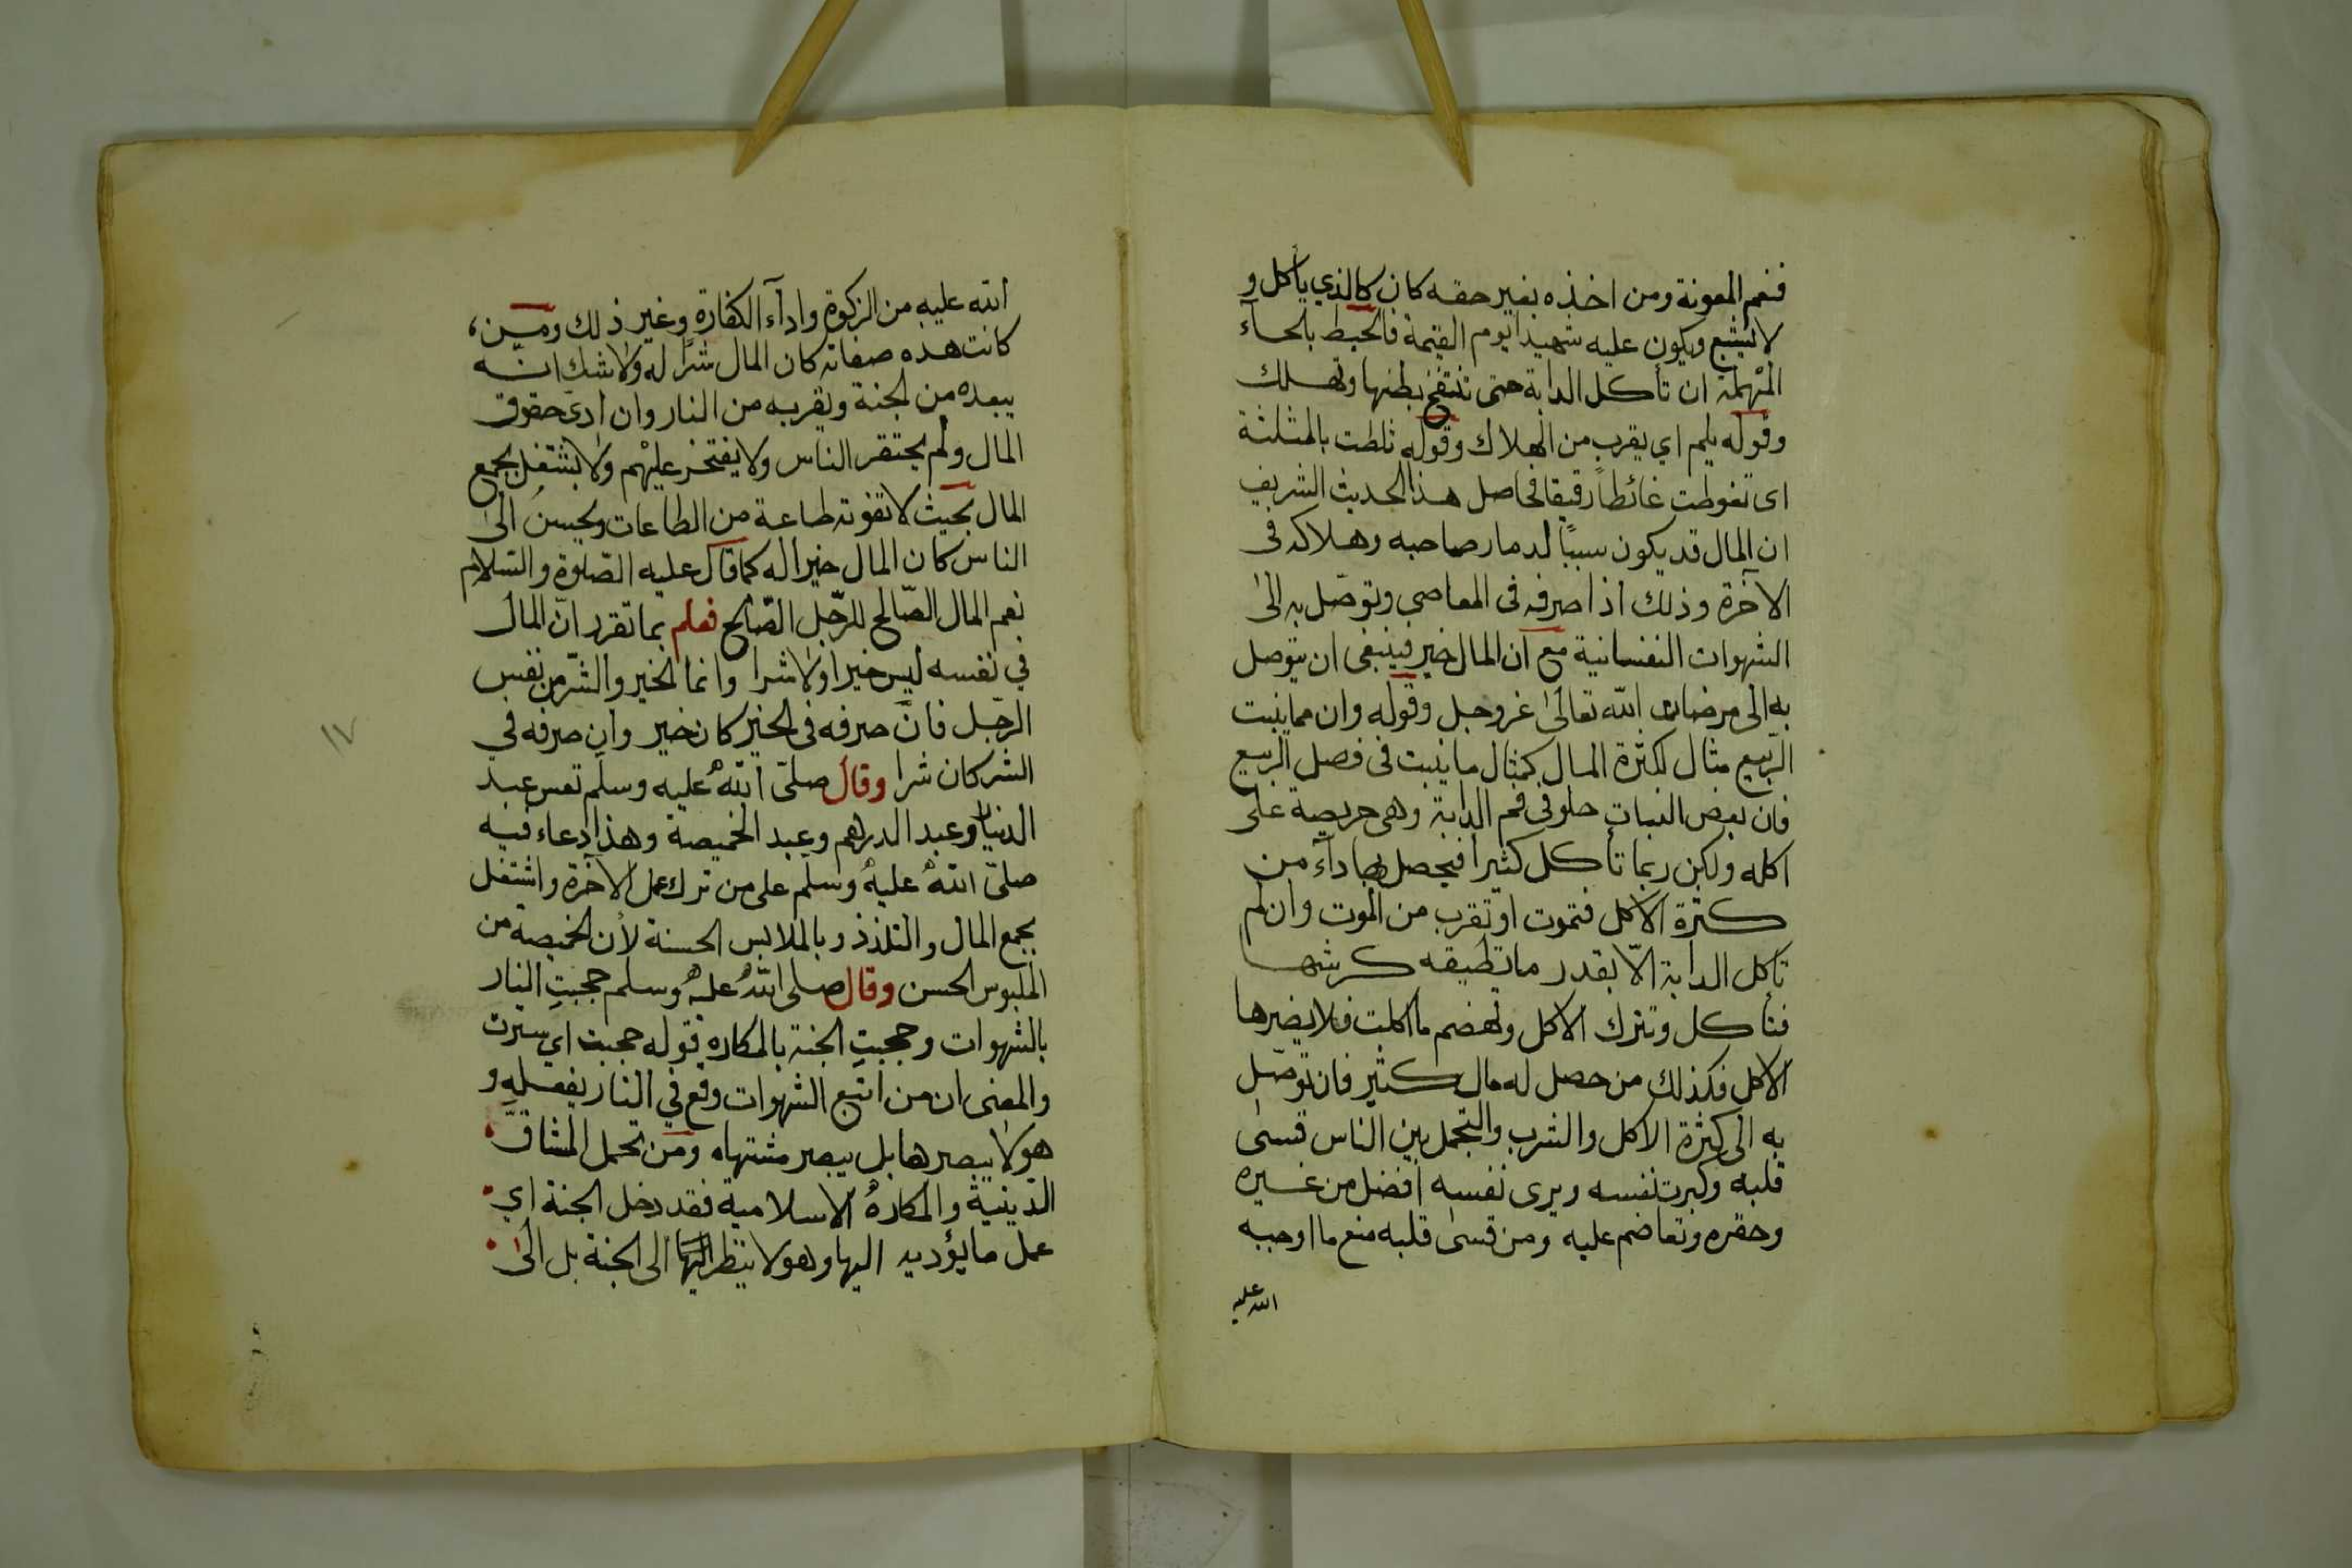 فنعم المعونة ومن اخذه بغير حقه كان كالذي يأكل و
لا يشبع ويكون عليه شهيدا يوم القيمة فالحبط بالحاء
المهملة ان تأكل الدابة حتى تنتفخ بطنها وتهلك
وقوله يلم اي يقرب من الهلاك وقوله ثلطت بالمثلثة
اى تغوطت غائطاً رقيقا فحاصل هذا الحديث الشريف
ان المال قد يكون سببًا لدمار صاحبه وهلاكه فى
الآخرة وذلك اذا صرفه فى المعاصى وتوصّل به الى
الشهوات النفسانية مع ان المال خير فينبغى ان يتوصل
به الى مرضات الله تعالى عز وجل وقوله وان مما ينبت
الربيع مثال لكثرة المال كمثال ما ينبت فى فصل الربيع
فان بعض النبات حلو فى فم الدابة وهى حريصة على
اكله ولكن ربما تأكل كثيرا فيحصل بها داء من
كثرة الاكل فتموت او تقرب من الموت وان لم
تأكل الدابة الّا بقدر ما تطيقه كرشها
فتأكل وتترك الاكل وتهضم ما اكلت فلا يضرها
الاكل فكذلك من حصل له مال كثير فان توصّل
به الى كثرة الاكل والشرب والتجمل بين الناس قسى
قلبه وكبرت نفسه ويرى نفسه افضل من غيره
وحقره وتعاضم عليه ومن قسى قلبه منع ما اوجبه
الله عليه
الله عليه من الزكوة واداء الكفارة وغير ذلك ومن
كانت هذه صفاته كان المال شرًا له ولا شك انه
يبعده من الجنة ويقربه من النار وان ادى حقوق
المال ولم يحتقر الناس ولا يفتخر عليهم ولا يشتغل بجمع
المال بحيث لا تفوته طاعة من الطاعات ويحسن الى
الناس كان المال خيرا له كما قال عليه الصّلوة والسلام
نعم المال الصّالح للرّجل الصّالح فعلم بما تقرر انّ المال
في نفسه ليس خيرا ولا شرا وانما الخير والشّر من نفس
الرجل فانّ صرفه فى الخير كان خير وان صرفه في
الشر كان شرا وقال صلّى الله عليه وسلم تعس عبد
الدينار وعبد الدرهم وعبد الخميصة وهذا دعاء فيه
صلىّ الله عليه وسلّم على من ترك عمل الآخرة واشتغل
بجمع المال والتلذذ وبالملابس الحسنة لأن الخميصة من
الملبوس الحسن وقال صلى الله عليه وسلم حجبتِ النار
بالشهوات وحجبتِ الجنة بالمكاره قوله حجبت اي سترت
والمعنى ان من اتبع الشهوات وقع في النار بفعله و
هو لا يبصرها بل يبصر مشتهاه ومن تحمل المشاقّ
الدّينية والمكاره الاسلامية فقد دخل الجنة اي
عمل ما يؤديه اليها وهو لا ينظر اليها الى الجنة بل الى
١٧